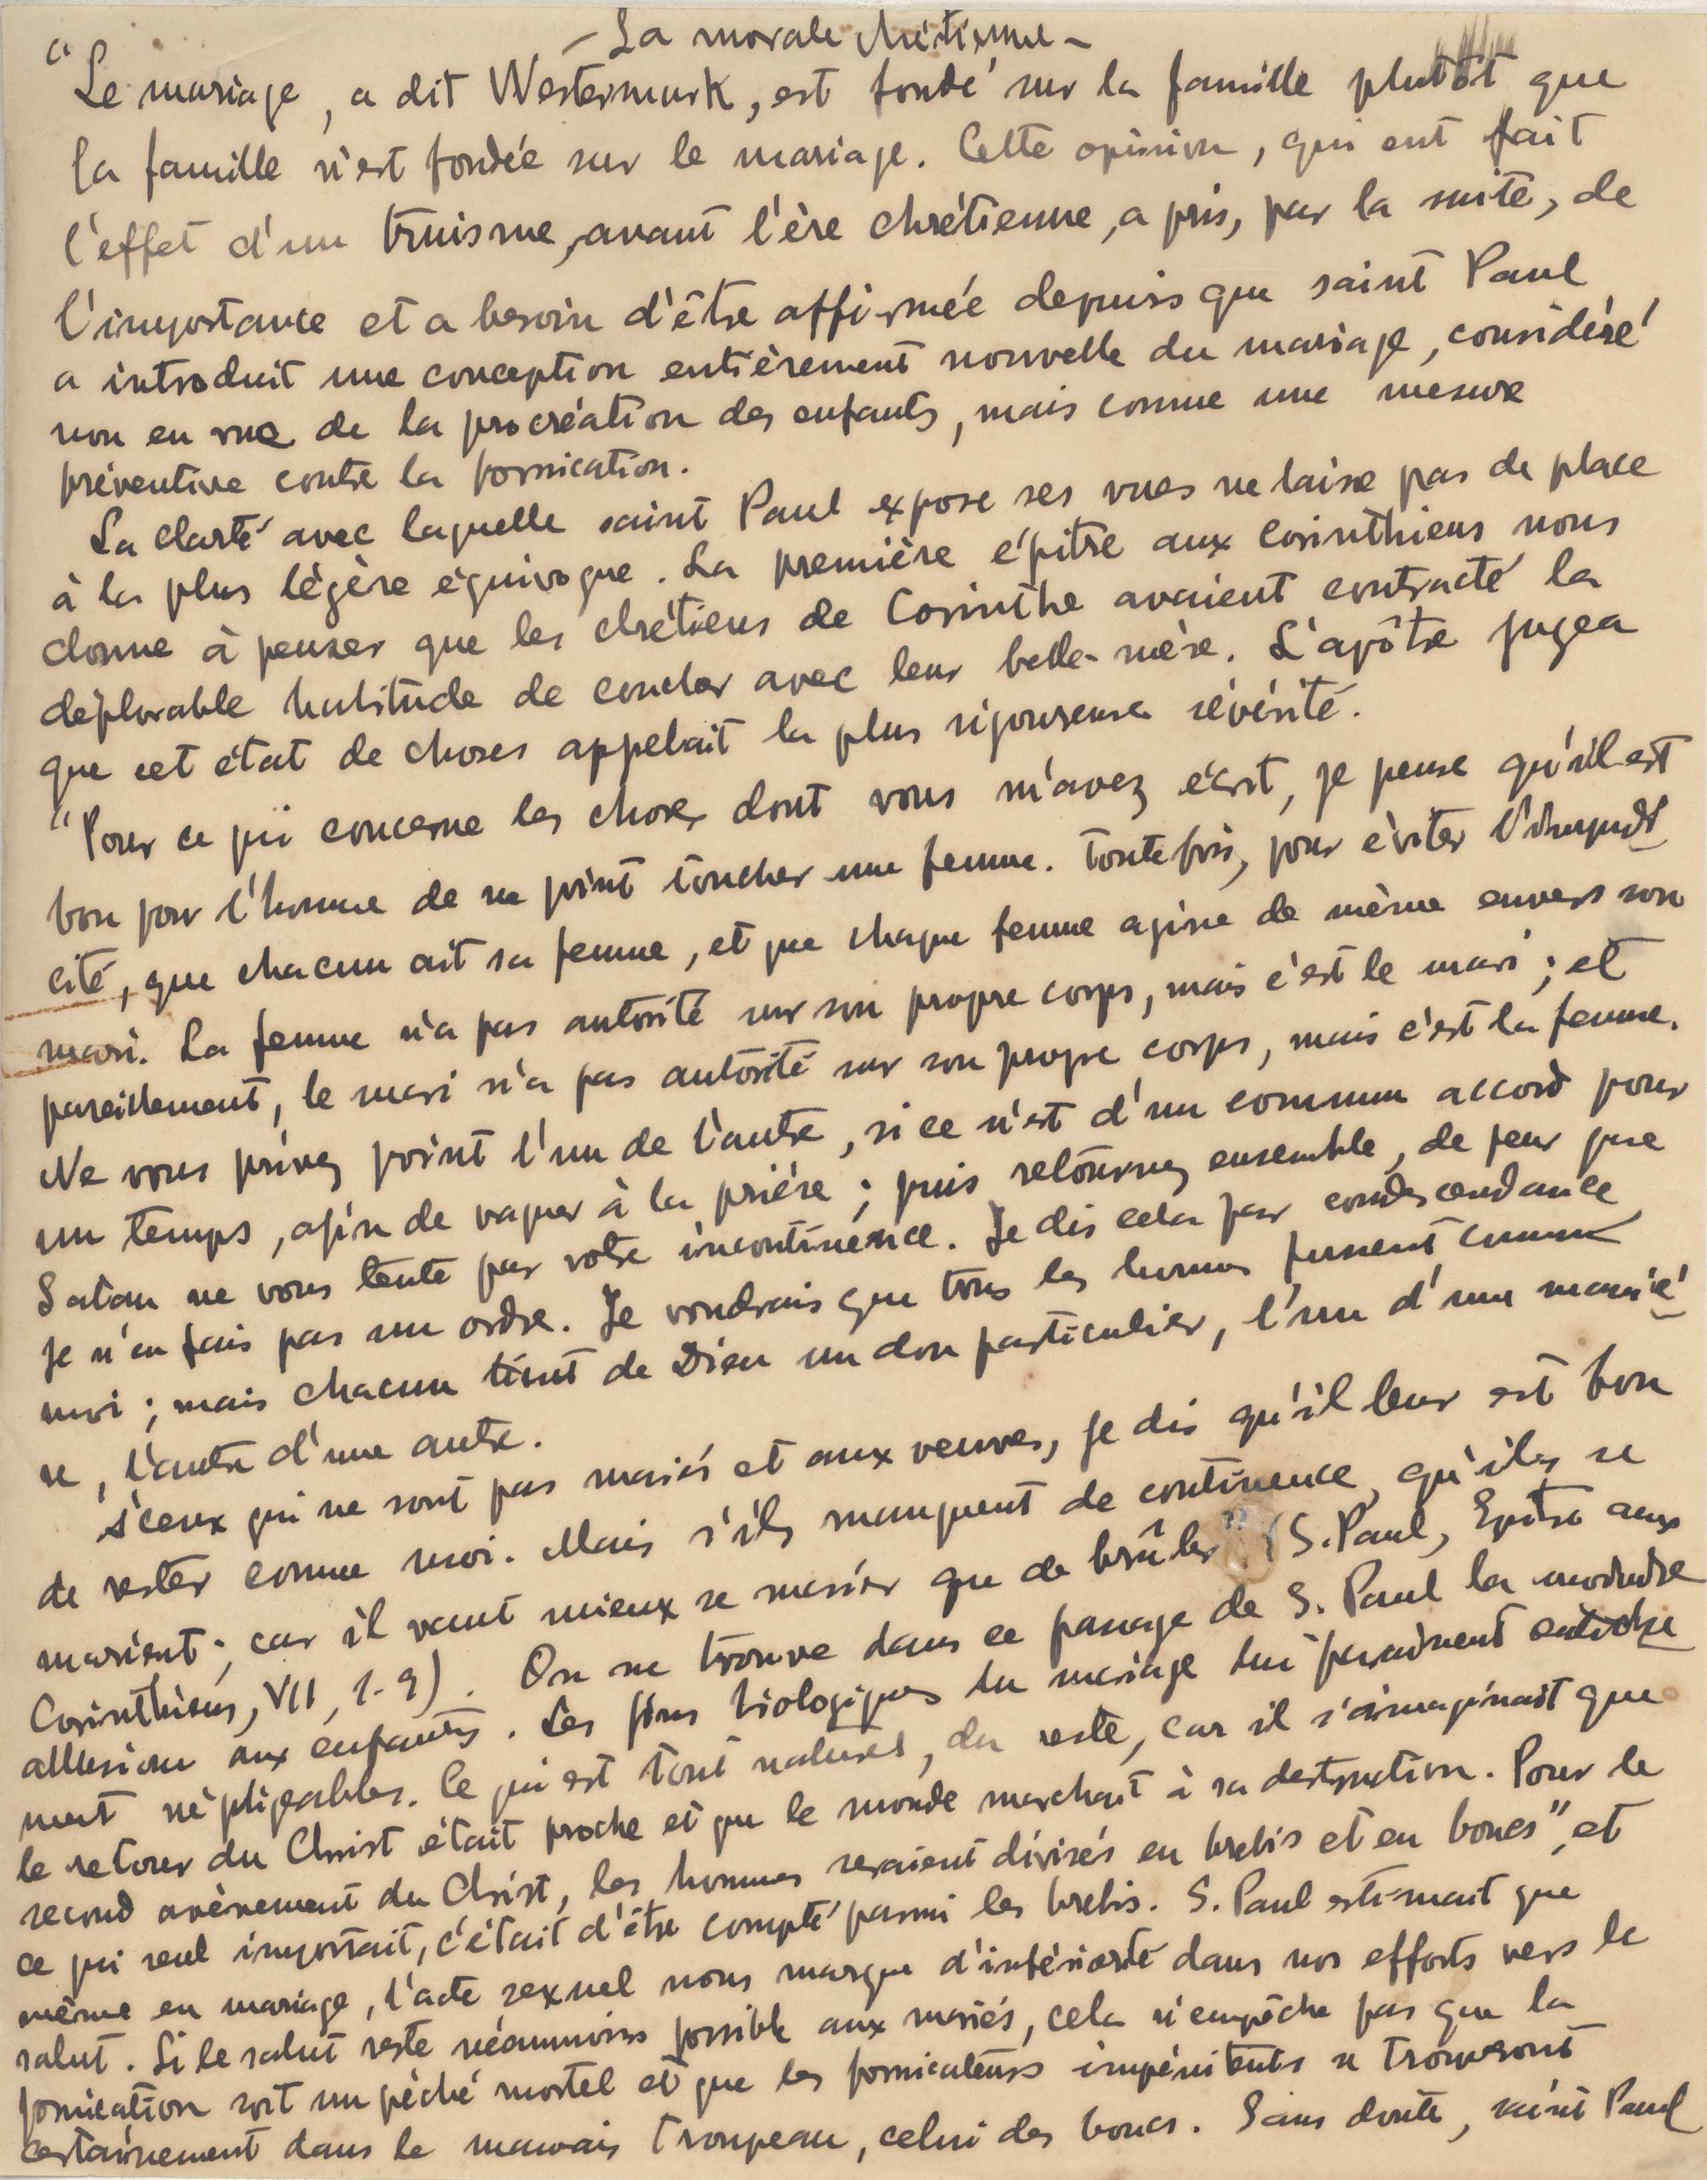 – La morale chrétienne –
"Le mariage, a dit Westermark, est fondé sur la famille plutôt que
la famille n'est fondée sur le mariage. Cette opinion, qui eut fait
l'effet d'un truisme, avant l'ère chrétienne, a pris, par la suite, de
l'importance et a besoin d'être affirmée depuis que saint Paul
a introduit une conception entièrement nouvelle du mariage, considéré
non en vue de la procréation des enfants, mais comme une mesure
préventive contre la fornication.
La clarté avec laquelle saint Paul expose ses vues ne laisse pas de place
à la plus légère équivoque. La première épître aux Corinthiens nous
donne à penser que les chrétiens de Corinthe avaient contracté la
déplorable habitude de coucher avec leur belle-mère. L'apôtre jugea
que cet état de choses appelait la plus rigoureuse sévérité.
"Pour ce qui concerne les choses dont vous m'avez écrit, je pense qu'il est
bon pour l'homme de ne point toucher une femme. Toutefois, pour éviter l'impudi
cité, que chacun ait sa femme, et que chaque femme agisse de même envers son
mari. La femme n'a pas autorité sur son propre corps, mais c'est le mari ; et
pareillement, le mari n'a pas autorité sur son propre corps, mais c'est la femme.
Ne vous privez point l'un de l'autre, si ce n'est d'un commun accord pour
un temps, afin de vaquer à la prière ; puis retournez ensemble, de peur que
Satan ne vous tente par votre incontinence. Je dis cela par condescendance
je n'en fais pas un ordre. Je voudrais que tous les hommes fussent comme
moi ; mais chacun tient de Dieu un don particulier, l'un d'une maniè
re, l'autre d'une autre.
A ceux qui ne sont pas mariés et aux veuves, je dis qu'il leur est bon
de rester comme moi. Mais s'ils manquent de continence, qu'ils se
marient ; car il vaut mieux se marier que de brûler" (S. Paul, Epitre aux
Corinthiens, VII, 1-9). On ne trouve dans ce passage de S. Paul la moindre
allusion aux enfants. Les fins biologiques du mariage lui paraissent entière
ment négligeables. Ce qui est tout naturel, du reste, car il s'imaginait que
le retour du Christ était proche et que le monde marchait à sa destruction. Pour le
second avènement du Christ, les hommes seraient divisés en brebis et en boucs", et
ce qui seul importait, c'était d'être compté parmi les brebis. S. Paul estimait que
même en mariage, l'acte sexuel nous marque d'infériorité dans nos efforts vers le
salut. Si le salut reste néanmoins possible aux mariés, cela n'empêche pas que la
fornication soit un péché mortel et que les fornicateurs impénitents se trouveront
certainement dans le mauvais troupeau, celui des boucs. Sans doute, saint Paul